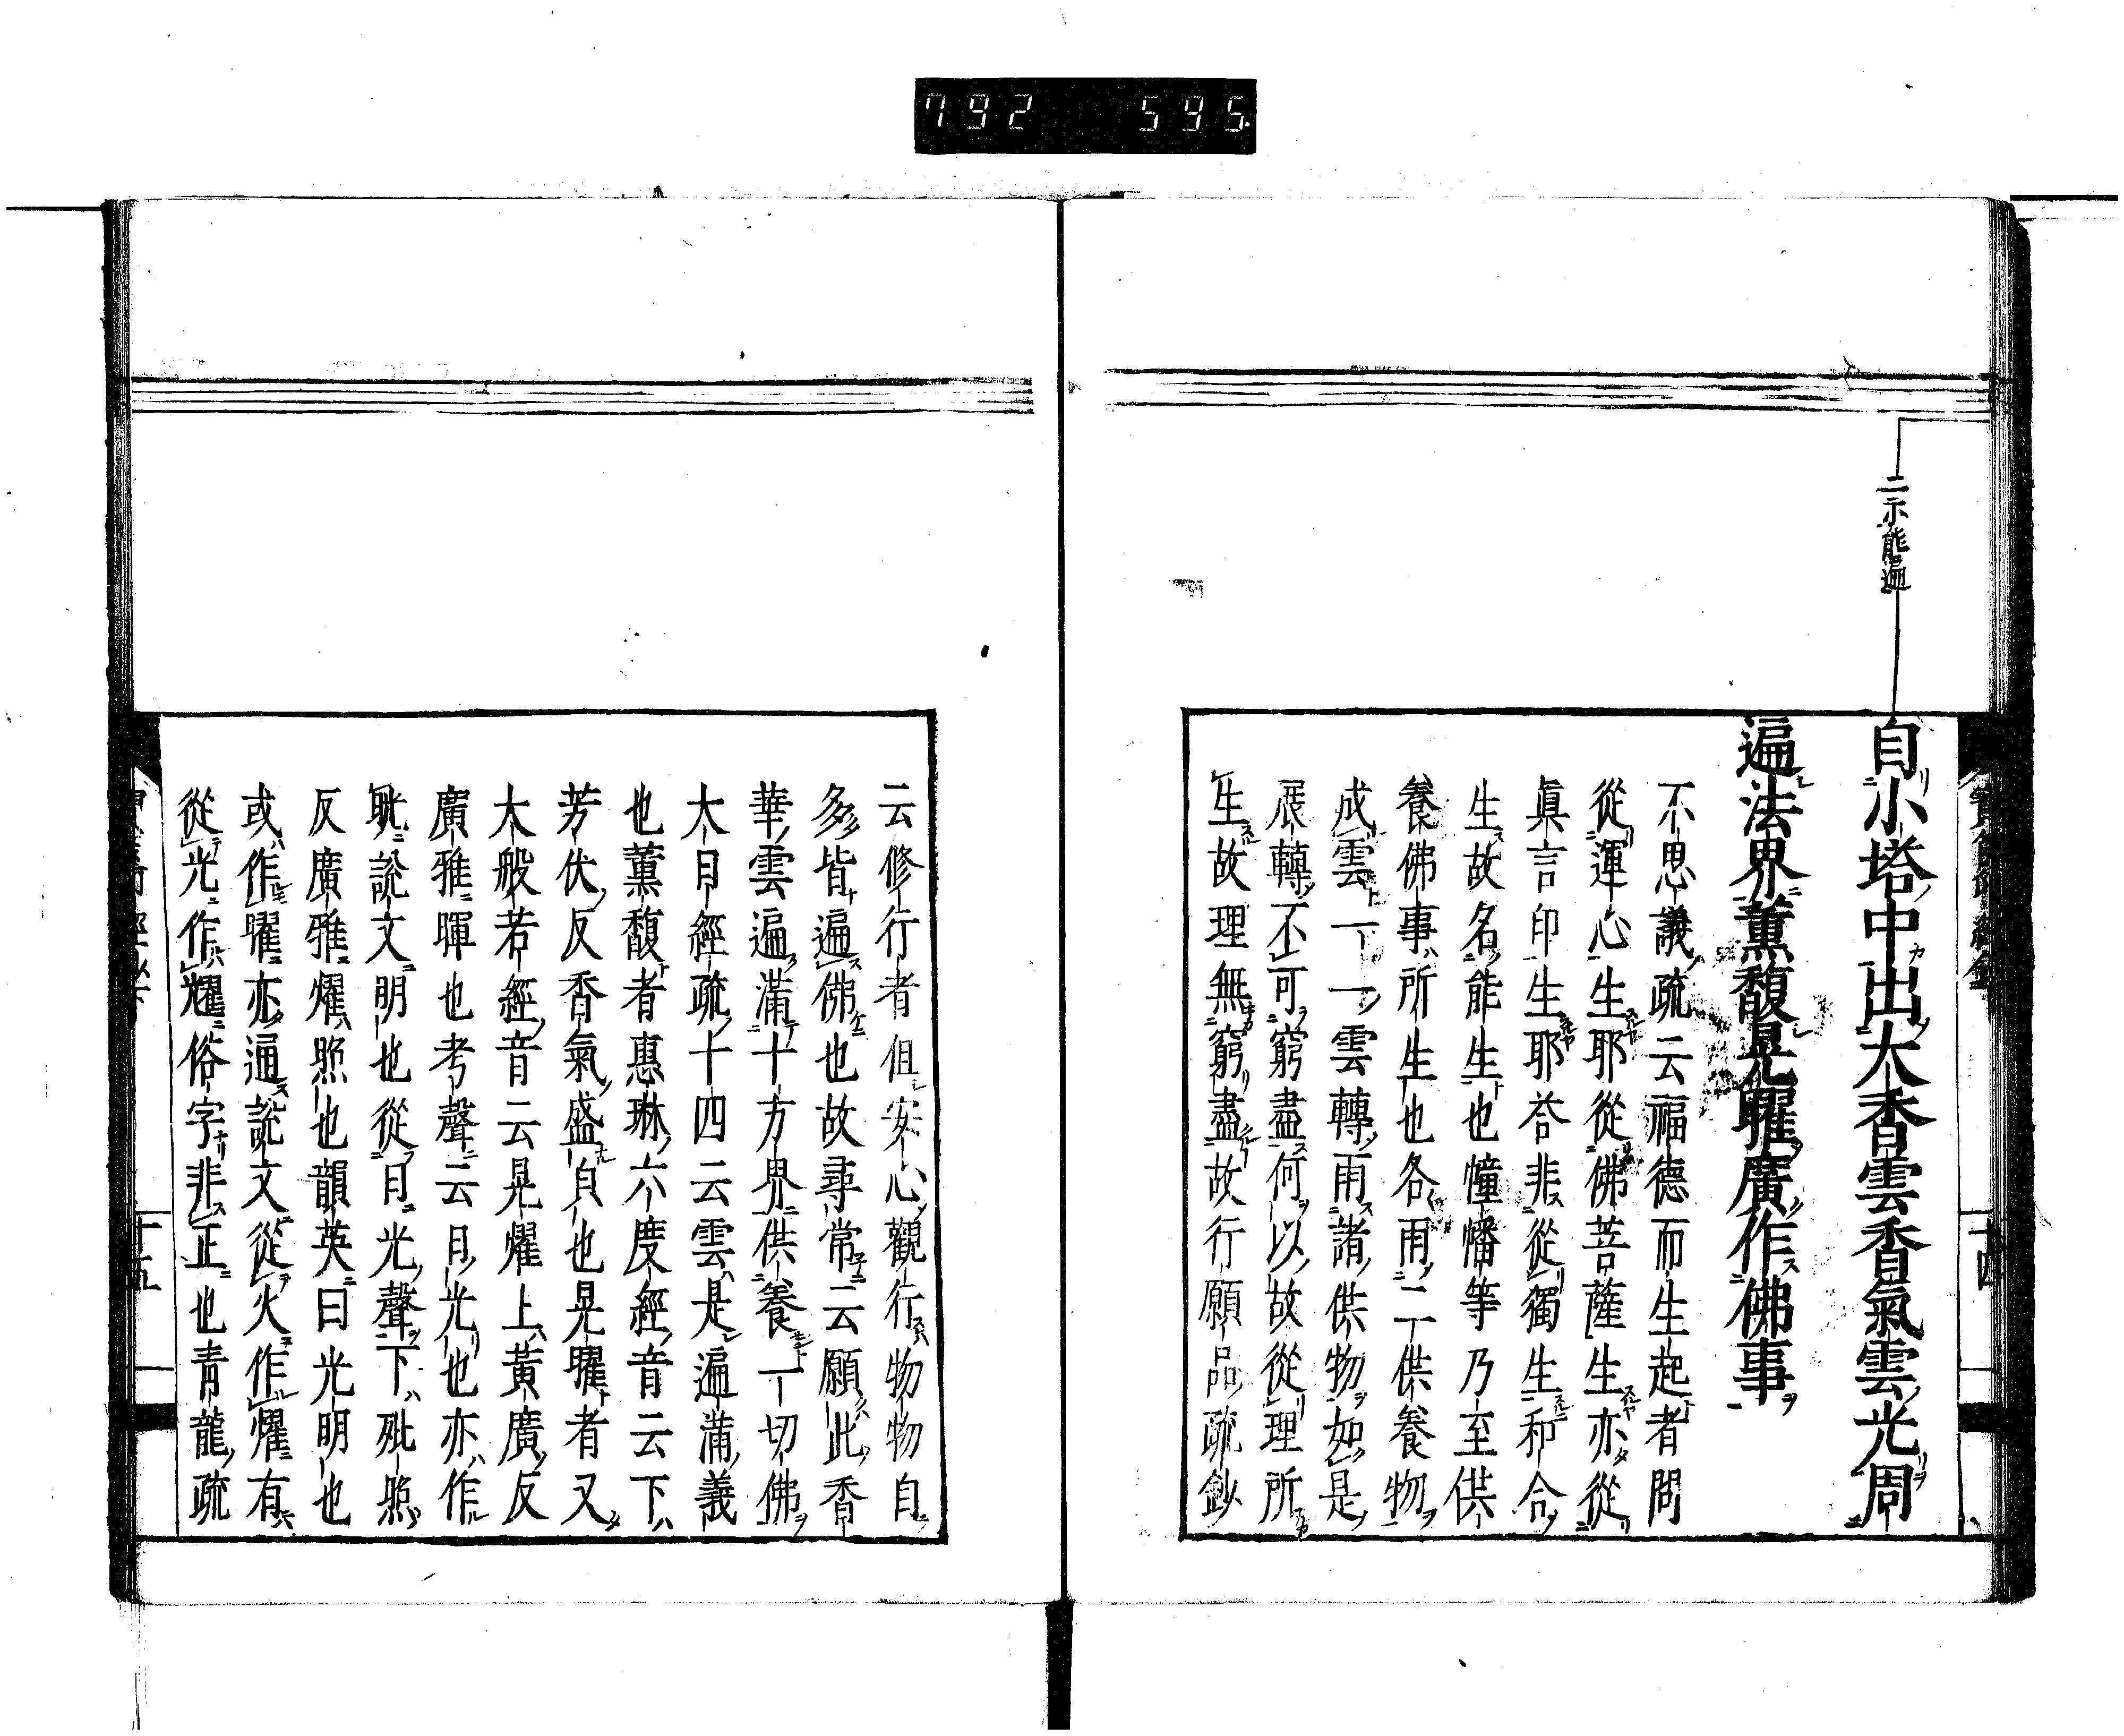 792 595
二示能遍
自小塔中出大香雲香氣雲光周
遍法界薰馥晃曜廣作佛事
不思議疏云福德而生起者問
從運心生耶從佛菩薩生亦從
眞言印生耶荅非從獨生和合
生故名能生也幢幡等乃至供
養佛事所生也各雨二供養物
成雲一一雲轉雨諸供物如是
展轉不可窮盡何以故從理所
生故理無窮盡故行願品疏鈔
十四
云修行者但安心觀行物物自
多皆遍佛也故尋常云願此香
華雲遍滿十方界供養一切佛
大日經疏十四云雲是遍滿義
也薰馥者惠琳六度經音云下
芳伏反香氣盛皃也晃曜者又
大般若經音云晃耀上黃廣反
廣雅暉也考聲云日光也亦作
晄說文明也從日光聲下 照
反廣雅燿照也韻英曰光明也
或作曜亦通說文從火作燿有
從光作耀俗字非正也靑龍疏
十五